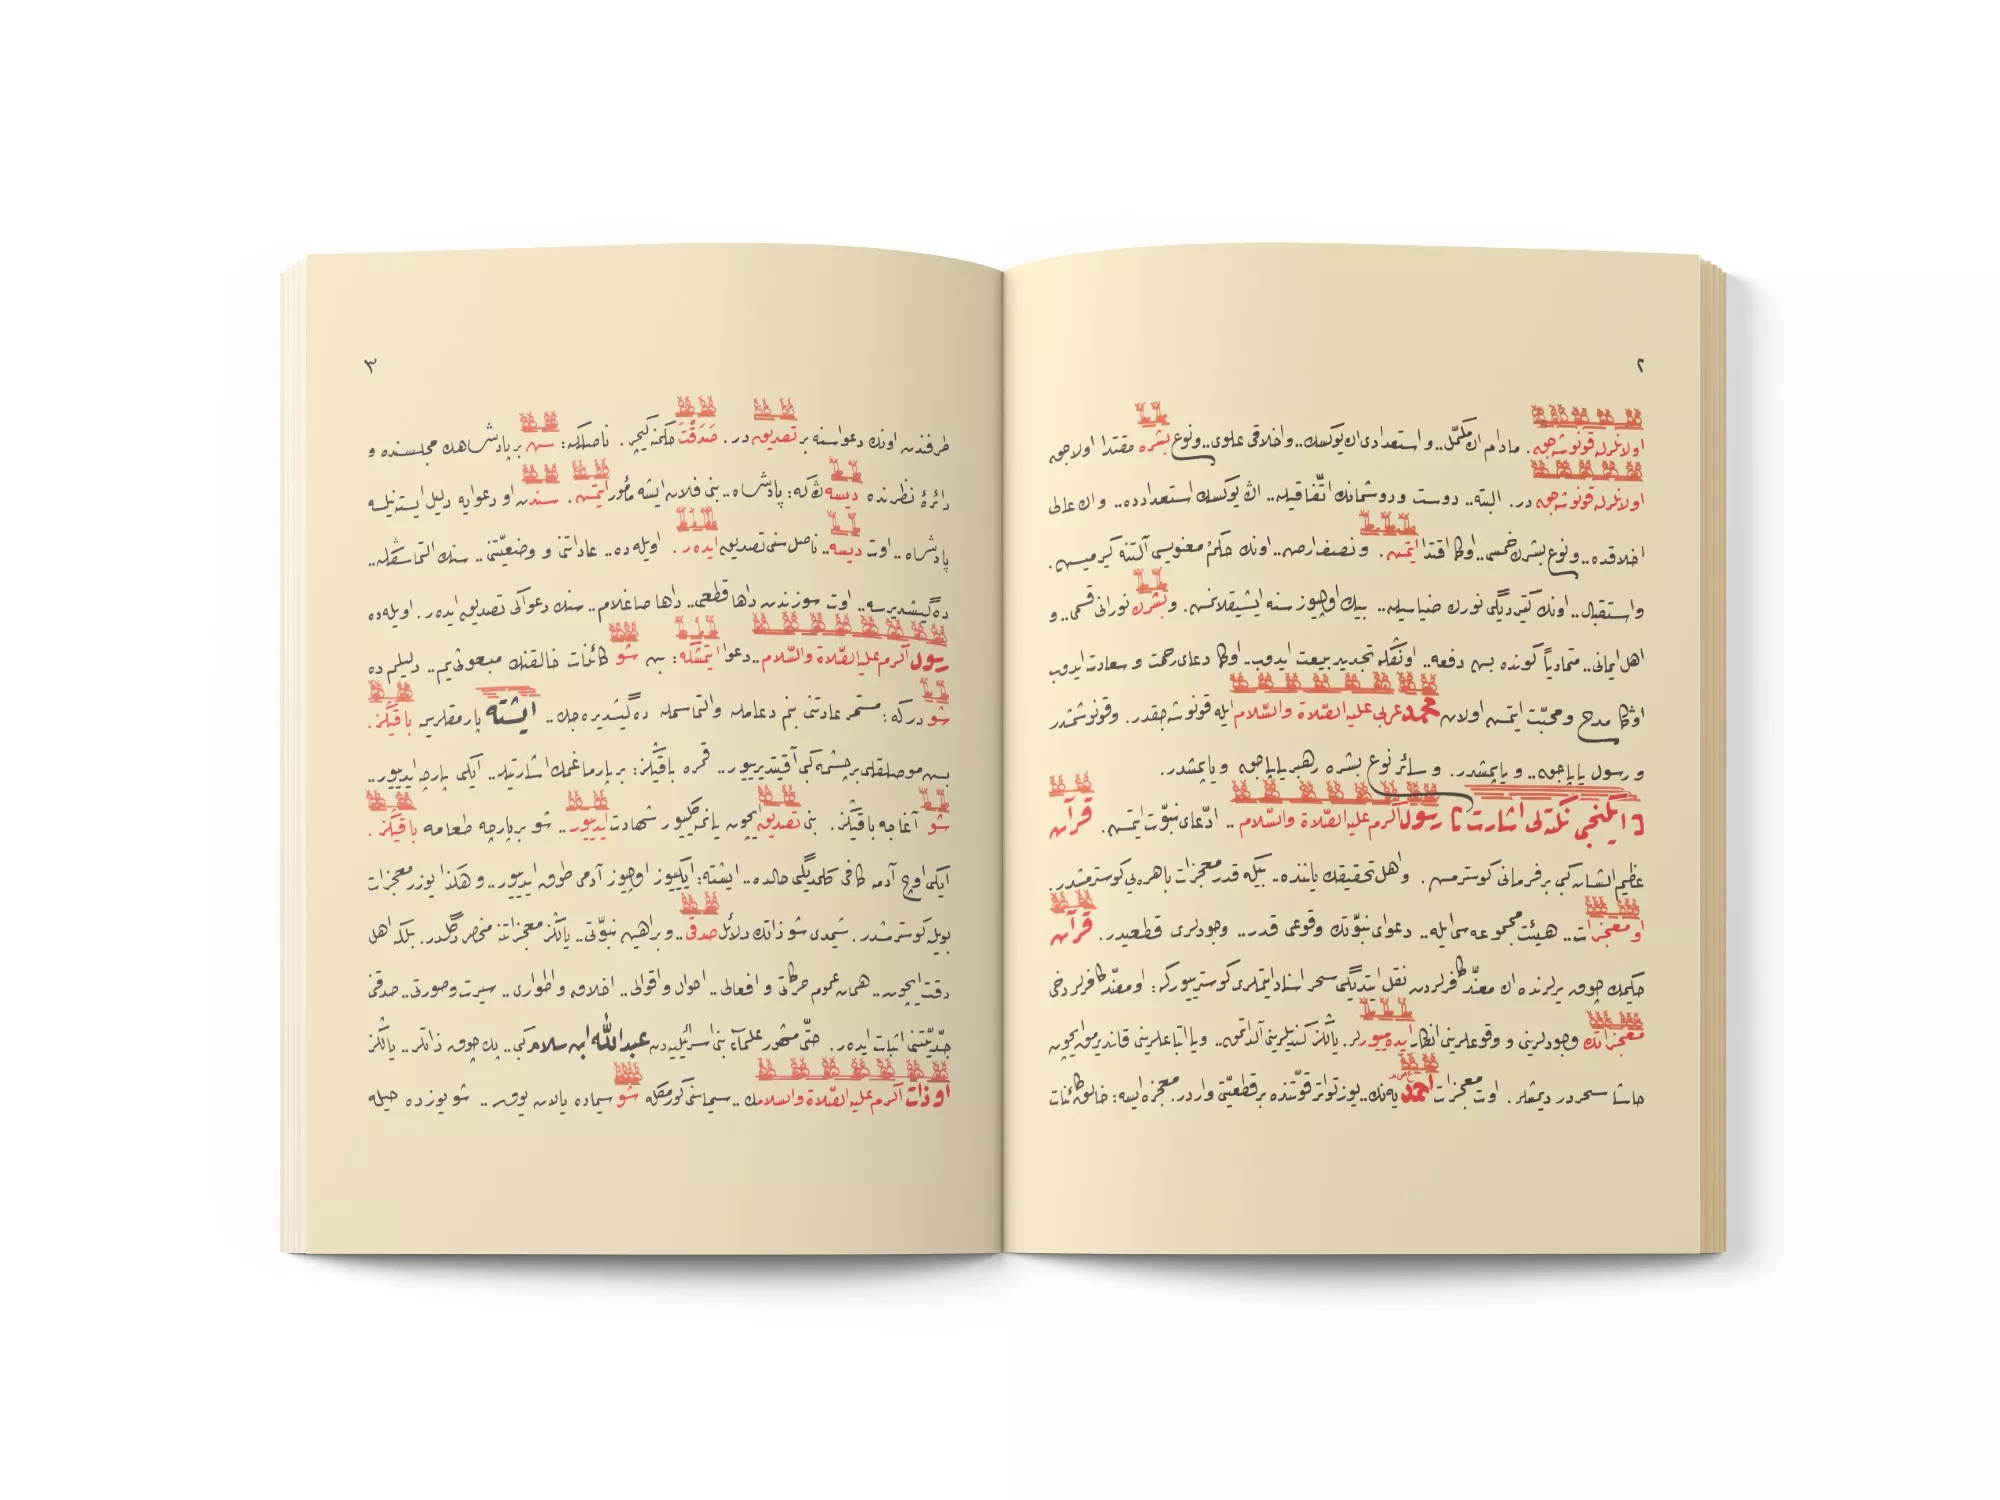 ٢
اولانلرله قونوشه‌جق. مادام اڭ مكمّل.. و استعدادى اڭ يوكسك.. و اخلاقى علوى.. و نوع بشره مقتدا اولاجق
اولانلرله قونوشه‌جق در. البته.. دوست و دوشمانڭ اتّفاقيله.. اڭ يوكسك استعدادده.. و اڭ عالى
اخلاقده.. و نوع بشرڭ خمسى.. اوڭا اقتدا ايتمش. و نصف ارض.. اونڭ حكم معنويسى آلتنه كيرميش.
و استقبال.. اونڭ كتيرديگى نورڭ ضياسيله.. بيڭ اوچيوز سنه ايشيقلانمش. و بشرڭ نورانى قسمى.. و
اهل ايمانى.. متماديًا كونده بش دفعه.. اونڭله تجديد بيعت ايدوب.. اوڭا دعاى رحمت و سعادت ايدوب
اوڭا مدح و محبّت ايتمش اولان محمد عربى عليه الصّلاة والسّلام ايله قونوشه‌جقدر. و قونوشمشدر
و رسول ياپاجق.. و ياپمشدر. و سائر نوع بشره رهبر ياپاجق و ياپمشدر.
ايكنجى نكته‌لى اشارت تا رسول اكرم عليه الصّلاة والسّلام.. ادّعاى نبوّت ايتمش. قرآن
عظيم الشان كبى بر فرمانى كوسترمش. و اهل تحقيقڭ ياننده.. بيڭه قدر معجزات باهره‌يى كوسترمشدر.
او معجزات.. هيئت مجموعه‌سى ايله.. دعواى نبوّتڭ وقوعى قدر.. وجودلرى قطعيدر. قرآن
حكيمڭ چوق يرلرنده اڭ معنّد كافرلردن نقل ايتديگى سحر اسناد ايتملرى كوستريور كه: او معنّد كافرلر دخى
معجزاتڭ وجودلرينى و وقوعلرينى انكار ايده‌ميورلر. يالڭز كنديلرينى آلداتمق.. ويا اتباعلرينى قانديرمق ايچون
حاشا سحردر ديمشلر. اوت معجزات احمديه‌نڭ.. يوز تواتر قوّتنده بر قطعيّتى واردر. معجزه ايسه: خالق كائنات
٣
طرفندن اونڭ دعواسنه بر تصديقدر. صَدَقْتَ حكمنه كيچر. ناصلكه: سن بر پادشاهڭ مجلسنده و
دائرۀ نظرنده ديسه‌ڭ كه: پادشاه.. بنى فلان ايشه مأمور ايتمش. سندن او دعوايه دليل ايسته‌نيلسه
پادشاه.. اوت ديسه.. ناصل سنى تصديق ايدر. اويله ده.. عاداتنى و وضعيّتنى.. سنڭ التماسڭله..
ده‌گيشديرسه.. اوت سوزندن داها قطعى.. داها صاغلام.. سنڭ دعواڭى تصديق ايدر. اويله ده
رسول اكرم عليه الصّلاة والسّلام.. دعوا ايتمشكه: بن شو كائنات خالقنڭ مبعوثى‌يم.. دليلم ده
شودر كه: مستمر عادتنى بنم دعامله و التماسمله ده‌گيشديره‌جك.. ايشته پارمقلريمه باقيڭز.
بش موصلقلى بر چشمه كبى آقيتديريور.. قمره باقيڭز: بر پارماغمڭ اشارتيله.. ايكى پارچه ايديور..
شو آغاجه باقيڭز. بنى تصديق ايچون يانمه كليور شهادت ايديور.. شو بر پارچه طعامه باقيڭز.
ايكى اوچ آدمه كافى كلمديگى حالده.. ايشته: ايكيوز اوچيوز آدمى طوق ايديور.. و هكذا يوزر معجزات
بويله كوسترمشدر. شيمدى شو ذاتڭ دلائل صدقى.. و براهين نبوّتى.. يالڭز معجزاتنه منحصر دگلدر. بلكه اهل
دقت ايچون.. همان عموم حركاتى و افعالى.. احوال و اقوالى.. اخلاق و اطوارى.. سيرت و صورتى.. صدقى
جدّيّتنى اثبات ايدر. حتّى مشهور علماء بنى اسرائيليه‌دن عبدالله ابن سلام كبى.. پك چوق ذاتلر.. يالڭز
او ذات اكرم عليه الصّلاة والسلامڭ.. سيماسنى كورمكله شو سيماده يالان يوقدر.. شو يوزده حيله